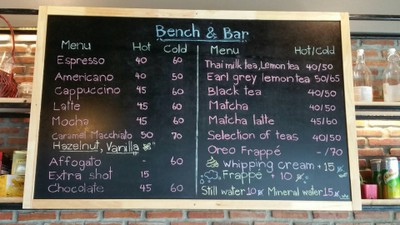 Bench & Bar
Menu Hot Cold
Espresso 40 60
Americano 40 50
Cappuccino 45 60
Latte 45 60
Mocha 45 60
Caramel Macchiato 50 70
Hazelnut, Vanilla
Affogato - 60
Extra shot 15
Chocolate 45 60
Menu Hot/Cold
Thai milk tea, Lemon tea 40/50
Earl grey lemon tea 50/65
Black tea 40/50
Matcha 40/50
Matcha latte 45/60
Selection of teas 40/50
Oreo Frappé - /70
whipping cream + 15
Frappé + 10
Still water 10 Mineral water 15